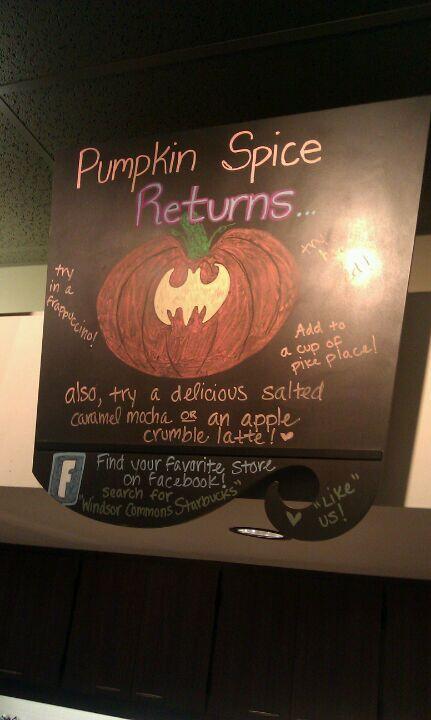 Pumpkin Spice
Returns...
try
in a
frappuccino!
try
Add to
a cup of
pike place!
also, try a delicious salted
caramel mocha or an apple
crumble latte! ♥
f
Find your favorite store
on Facebook!
search for
Windsor Commons Starbucks"
♥ "Like"
us!